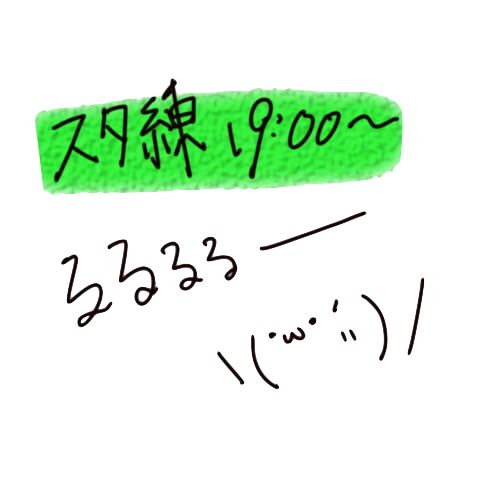 スタ練 19:00〜
るるるるー
\(･ω･´ﾞ)/